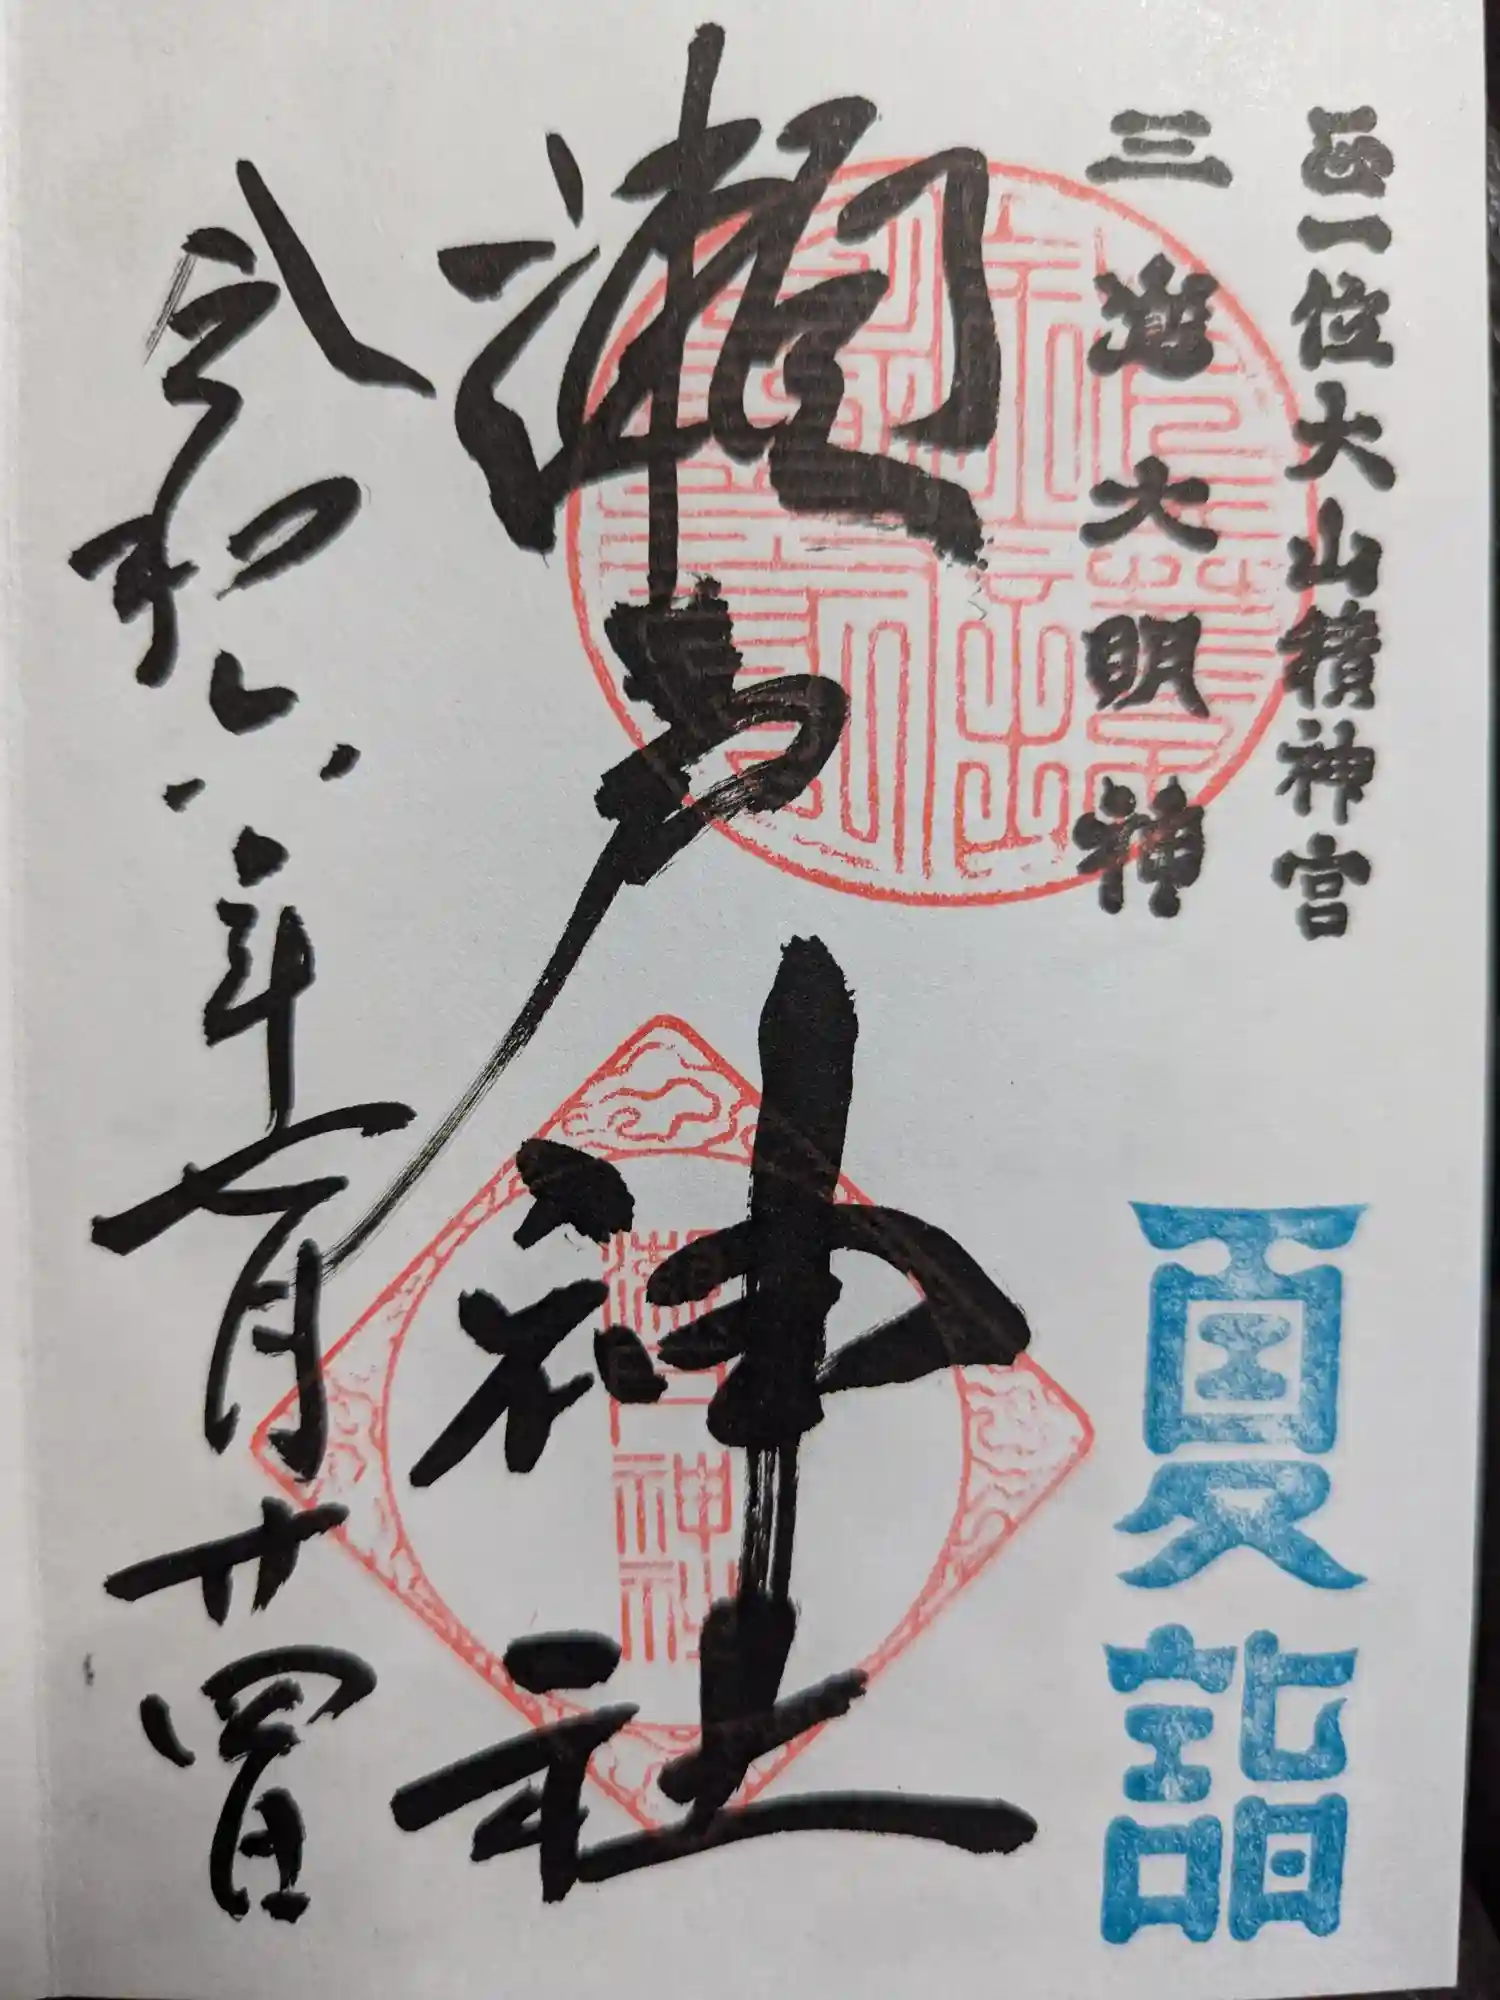 正一位大山積神宮
三嶋大明神
夏詣
瀬戸神社
令和六年七月廿四日
瀬戸神社